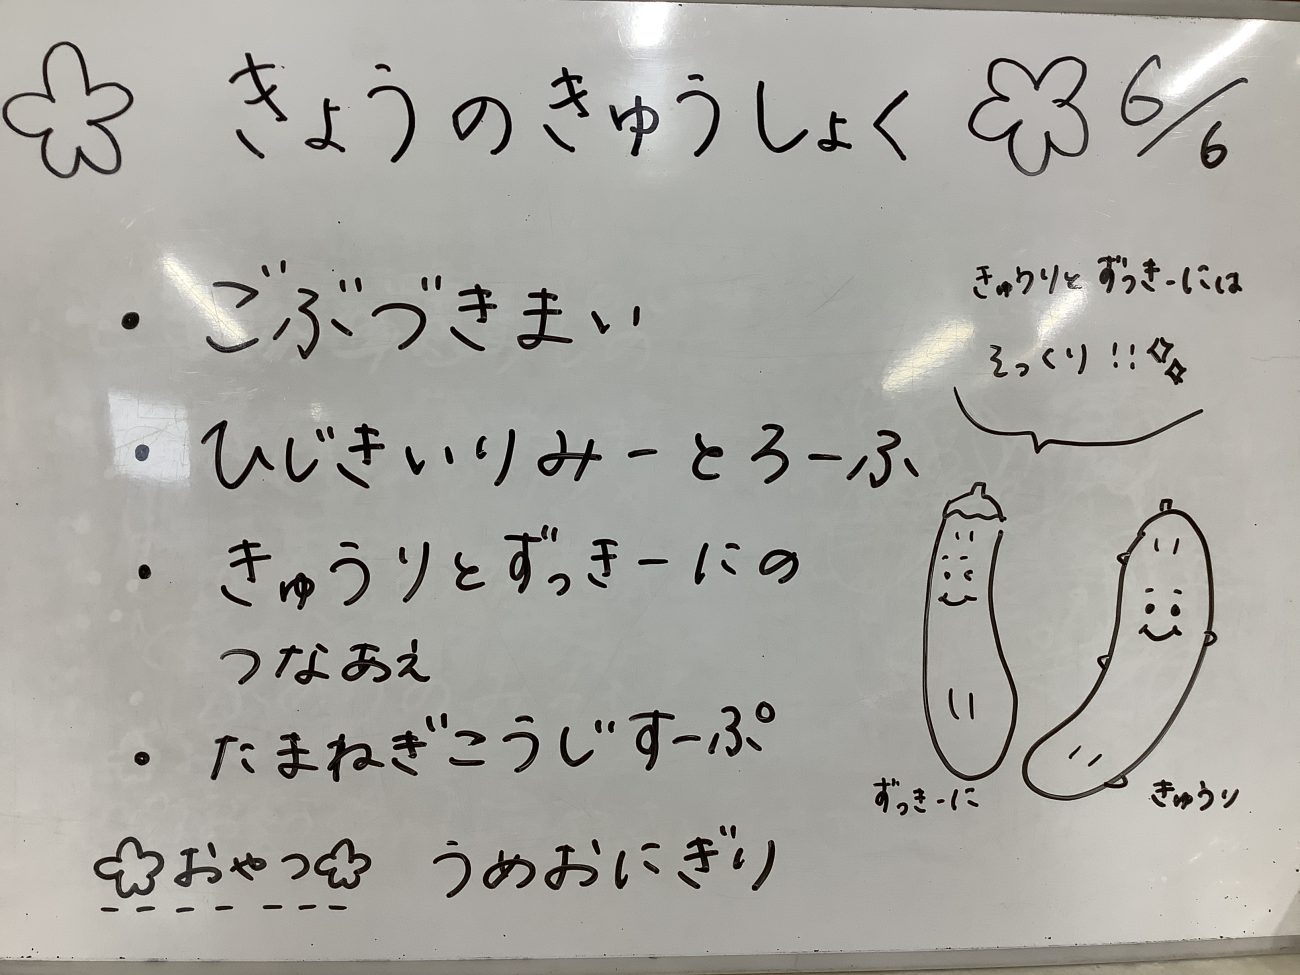 きょうのきゅうしょく 6/6
・ごぶづきまい
・ひじきいりみーとろーふ
・きゅうりとずっきーにの
つなあえ
・たまねぎこうじすーぷ
おやつ うめおにぎり
きゅうりとずっきーには
そっくり!!
ずっきーに
きゅうり